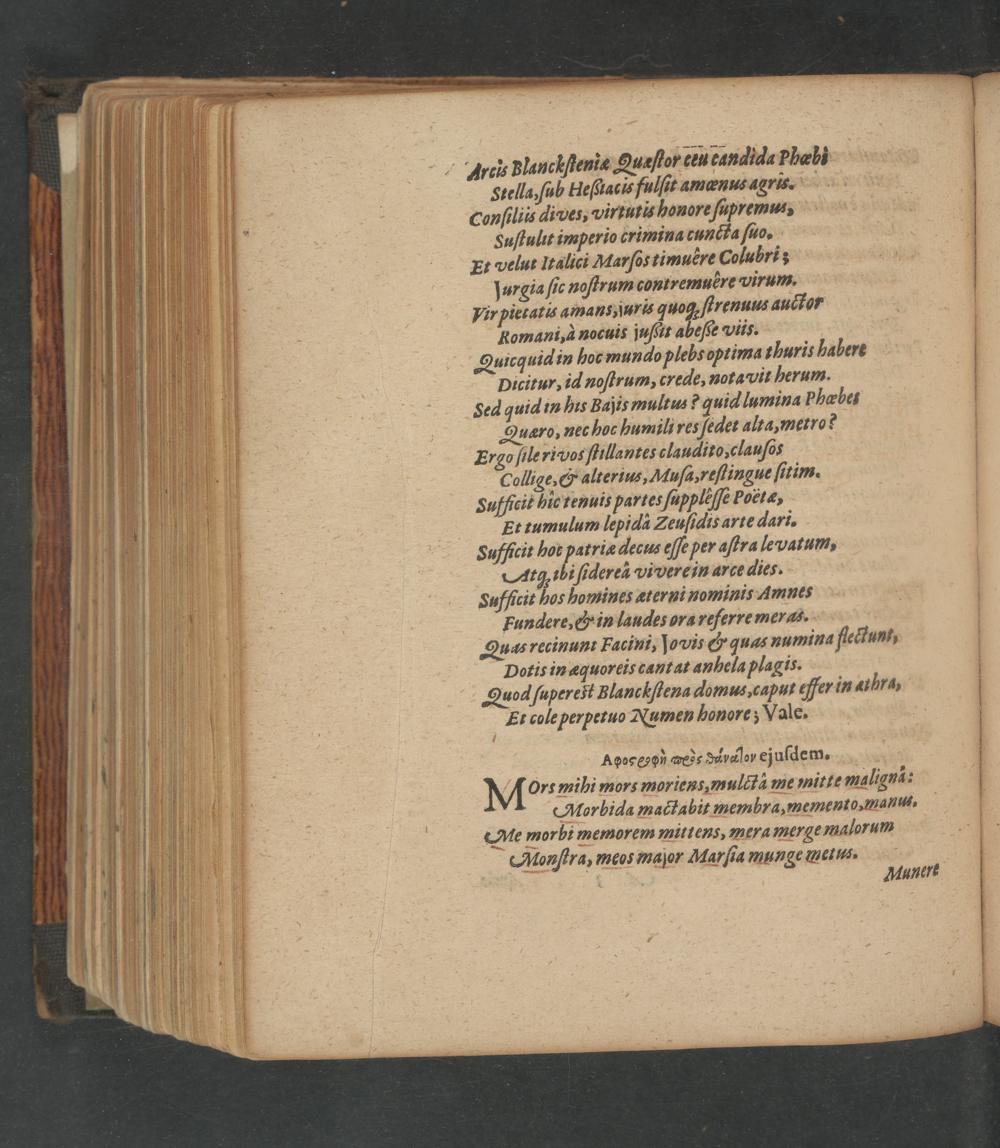 Arcis Blanckſteniæ Quæſtor ceu candida Phœbi
Stella, ſub Heßiacis fulſit amœnus agris.
Conſiliis dives, virtutis honore ſupremus,
Suſtulit imperio crimina cuncta ſuo.
Et velut Italici Marſos timuêre Colubri;
Jurgia ſic noſtrum contremuêre virum.
Vir pietatis amans, juris quoq; ſtrenuus auctor
Romani, à nocuis jußit abeße viis.
Quicquid in hoc mundo plebs optima thuris habere
Dicitur, id noſtrum, crede, notavit herum.
Sed quid in his Bajis multus? quid lumina Phœbes
Quæro, nec hoc humili res ſedet alta, metro?
Ergo ſile rivos ſtillantes claudito, clauſos
Collige, & alterius, Muſa, reſtingue ſitim.
Sufficit hîc tenuis partes ſupplêſſe Poëtæ,
Et tumulum lepidâ Zeuſidis arte dari.
Sufficit hoc patriæ decus eſſe per aſtra levatum,
Atq; ibi ſidereâ vivere in arce dies.
Sufficit hos homines æterni nominis Amnes
Fundere, & in laudes ora referre meras.
Quas recinunt Facini, Jovis & quas numina flectunt,
Dotis in æquoreis cantat anhela plagis.
Quod ſupereſt Blanckſtena domus, caput effer in æthra,
Et cole perpetuo Numen honore; Vale.
Αφοςροφὴ πρὸς θάναῖον ejuſdem.
MOrs mihi mors moriens, mulctâ me mitte malignâ:
Morbida mactabit membra, memento, manus.
Me morbi memorem mittens, mera merge malorum
Monſtra, meos major Marſia munge metus.
Munere